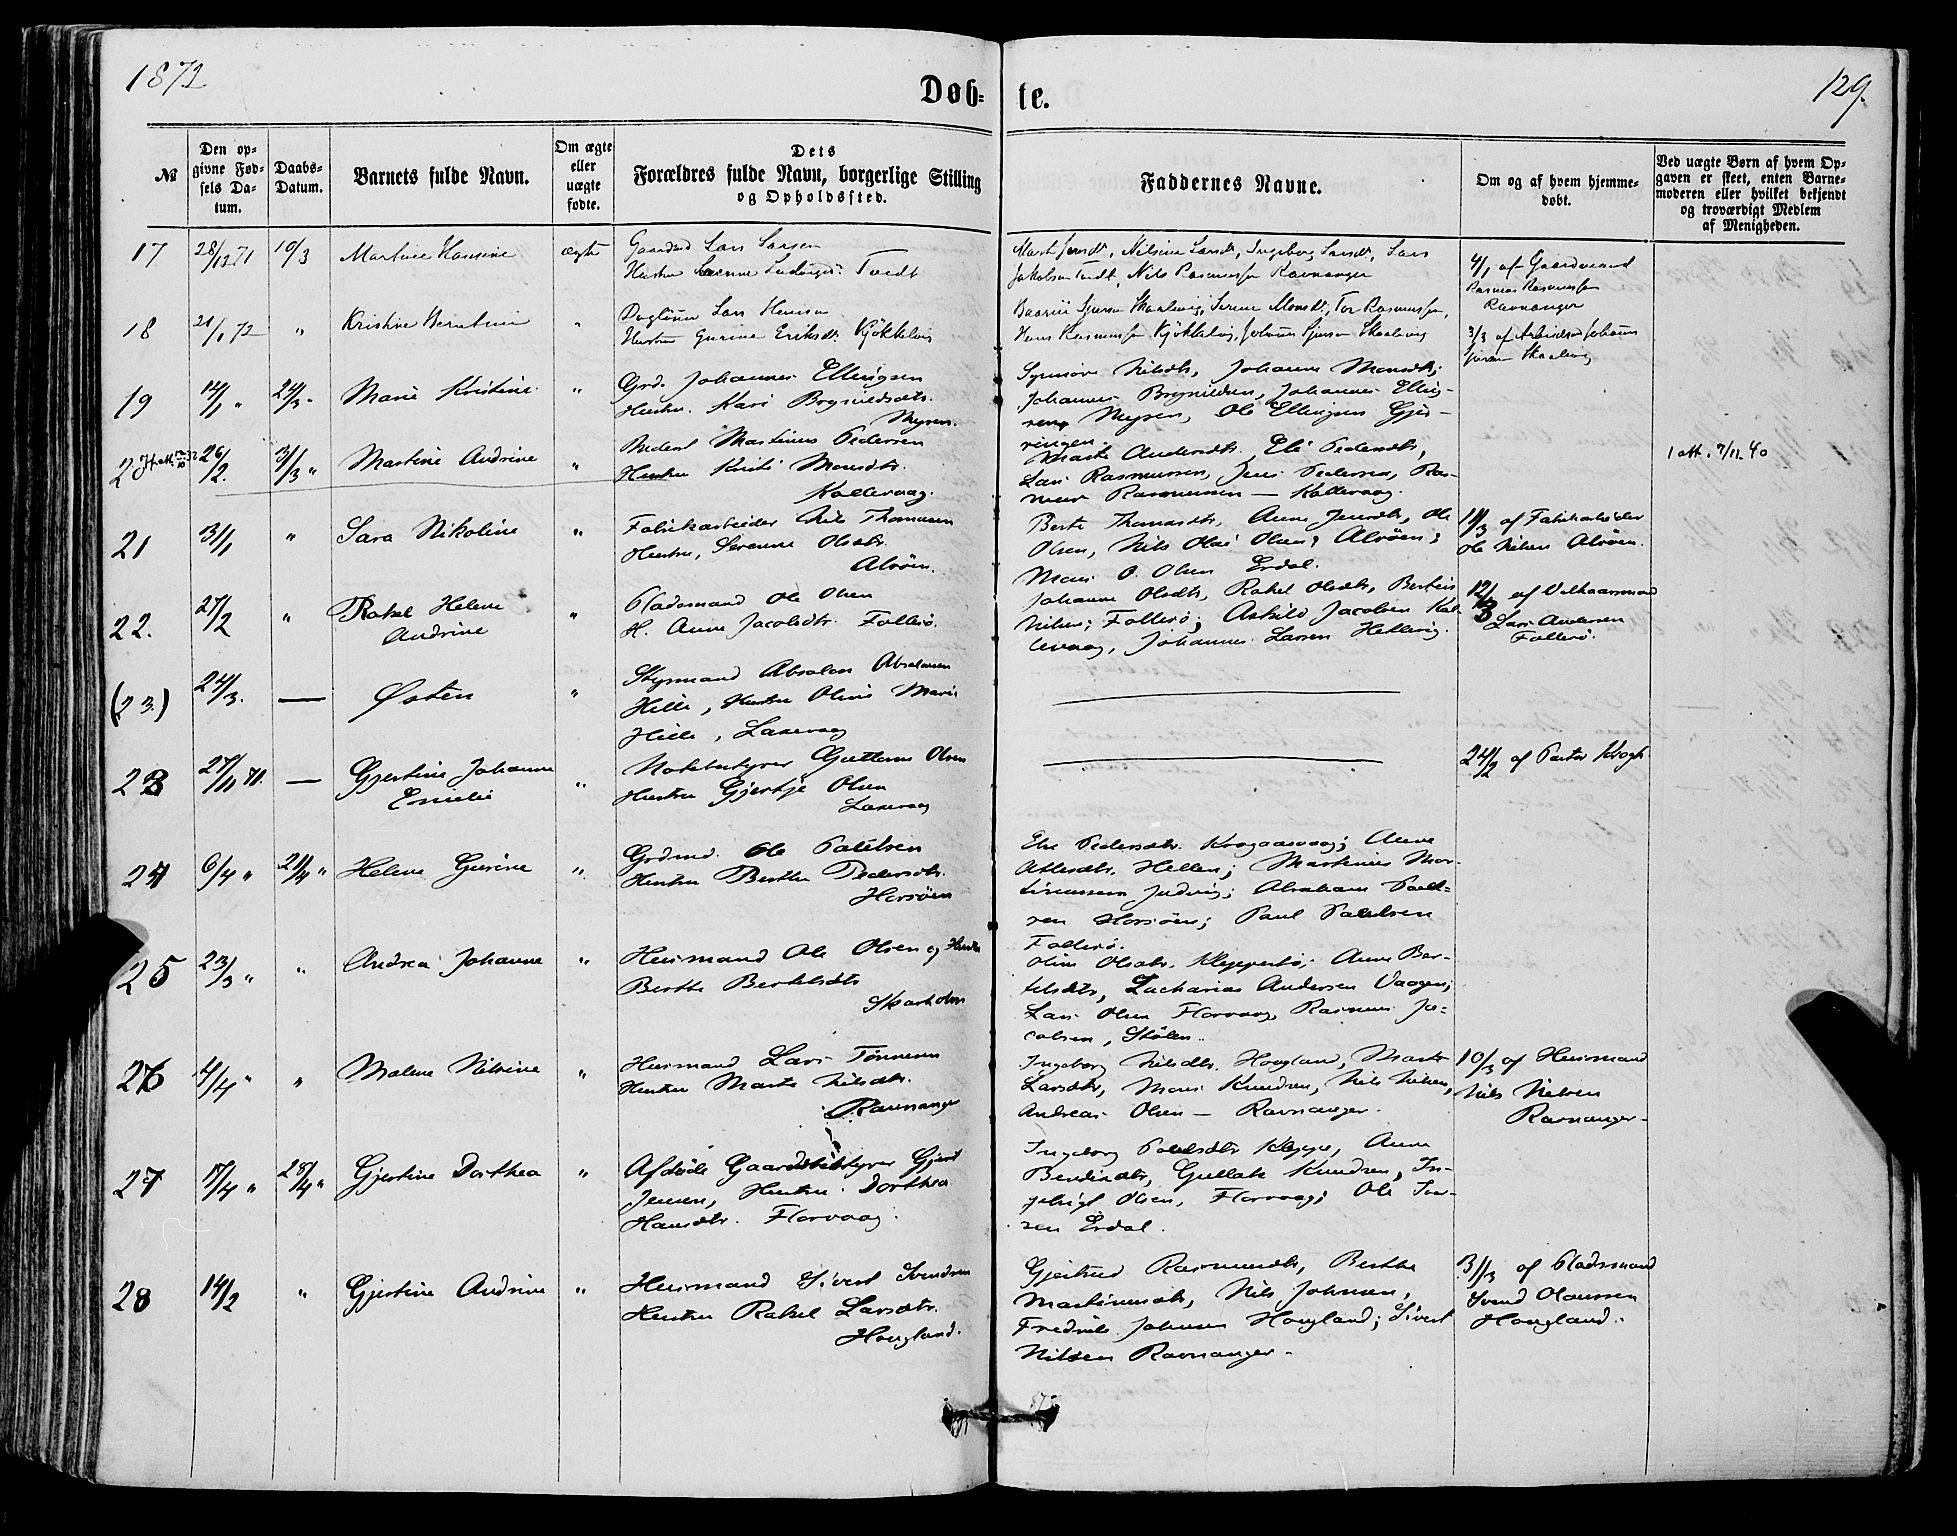 1872
129.
Døb- te.
№
Den op-
givne Fød-
sels Da-
tum.
Daabs-
Datum.
Barnets fulde Navn.
Om ægte
eller
uægte
fødte.
Dets
Forældres fulde Navn, borgerlige Stilling
og Opholdssted.
Faddernes Navne.
Om og af hvem hjemme-
døbt.
Ved uægte Børn af hvem Op-
gaven er skeet, enten Barne-
moderen eller hvilket bekjendt
og troværdigt Medlem
af Menigheden.
17 28/12 71 10/3 Martine Hansine ægte
Gaardmd Lars Larsen
Hustru Tvedt
Nilsine Larsdt, Ingeborg Larsdt, Lars
Jakobsen Tvedt, Nils Rasmussen Ravnanger
4/1 af Gaardmand
Rasmus Rasmussen
Ravnanger
18 21/1 72 " Kristine Berntine "
Lars Hansen
Hustru Gurine Eriksdt. Kjøkkelvig
Skaalevig, Serene Monsdt, Tor Rasmussen,
Hans Rasmussen Kjøkkelvig, Johannes Skaalevig
3/3 af Johannes
Skaalevig
19 14/1 " 24/3 " Marie Kristine "
Grd. Johannes Ellingsen
Hustru Kari Brynildsdtr.
Myren.
Synnøve Nilsdt, Johanne Monsdt;
Johannes Brynildsen, Johannes Elling-
sen Myren, Ole Ellingsen Gjer-
ringen.
2 26/2. 31/3 " Martine Andrine "
Martinus Pedersen
Hustru Kristi Monsdtr.
Kollevaag.
Marte Andersdt, Eli Pedersdtr,
Lars Rasmussen, Jens Pedersen, Ras-
mus Rasmussen — Kollevaag.
1 att. 7/11. 40
21 31/1 " Sara Nikoline "
Fabrikarbeider Nils Thomasen
Hustru, Serenne Olsdtr.
Alvøen.
Berte Thomasdtr, Anne Jensdtr, Ole
Olsen, Nils Olai Olsen, Alvøen;
Mons O. Olsen Erdal.
11/3 af Fabrikarbeider
Ole Nilsen Alvøen.
22. 27/2 " Rakel Helene
Andrine "
Pladsmand Ole Olsen
H. Anne Jacobsdtr. Follesø.
Johanne Olsdtr, Rakel Olsdtr, Bertin
Nilsen, Follesø; Askild Jacobsen Kol-
levaag, Johannes Larsen Hellevig.
12/3 af
Lars Andersen
Follesø.
(23.) 24/3. — Østen "
Styrmand Absalon Absalonsen
Hille, Hustru Oline Marie
Hille, Laxevaag
23 27/11 71. — Gjertine Johanne
Emilie "
Guttorm Olsen
Hustru Gjertje Olsen
Laxevaag
24/2 af Pastor Krogh
24 6/4 " 21/4 " Helene Gurine "
Grdmd. Ole Paulsen
Hustru Berthe Pedersdtr.
Horsøen
Else Pedersdtr. Krogaasvaag; Anne
Atlesdtr. Hellen; Martinus Mor-
Abraham Paul-
sen Horsøen; Paul Paulsen
Follesø.
25 23/3 " " Andrea Johanne "
Husmand Ole Olsen og Hustru
Berthe Bertelsdtr
Skarholm
Oline Olsdtr. Kleppestø; Anne Ber-
telsdtr, Zacharias Andersen Vaagen;
Lars Olsen Florvaag, Rasmus Ja-
cobsen, Stølen.
26 4/4 " " Malene Nilsine "
Husmand Lars Tønnesen
Hustru Marte Nilsdtr.
Ravnanger
Ingeborg Nilsdtr. Hougland, Marte
Larsdtr, Mons Knudsen, Nils Nilsen,
Andreas Olsen — Ravnanger.
10/3 af Husmand
Nils Nilsen
Ravnanger
27 17/4 " 28/4 " Gjertine Dorthea "
Afdøde Gaardbestyrer Gjert
Jensen, Hustru Dorthea
Hansdtr. Florvaag.
Ingeborg Paulsdtr Kleppe, Anne
Gullak Knudsen, In-
Olsen, Florvaag; Ole Iver-
sen Erdal.
28 14/2 " Gjertine Andrine "
Husmand Sivert Svendsen
Hustru Rakel Larsdtr.
Hougland.
Gjertrud Rasmusdtr, Berthe
Martinusdtr, Nils Johnsen,
Fredrik Johnsen Hougland; Sivert
Nilsen Ravnanger.
31/3 af Pladsmand
Svend Olaussen
Hougland.